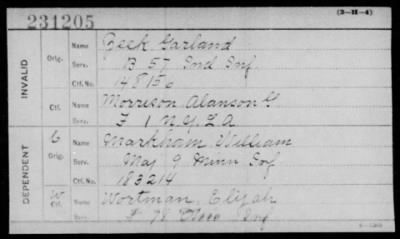 231205
(3-H-4)
INVALID
Orig.
Name Zeek Garland
Serv. B 57 Ind Inf.
Ctf. No. 148156
Ctf.
Name Morrison Alanson G
Serv. F 1 N.Y.L.A
DEPENDENT
C
Orig.
Name Markham, William
Serv. Maj 9 Minn Inf
Ctf. No. 183214
W
Ctf.
Name Wortman, Elijah
Serv. F 78 Inf